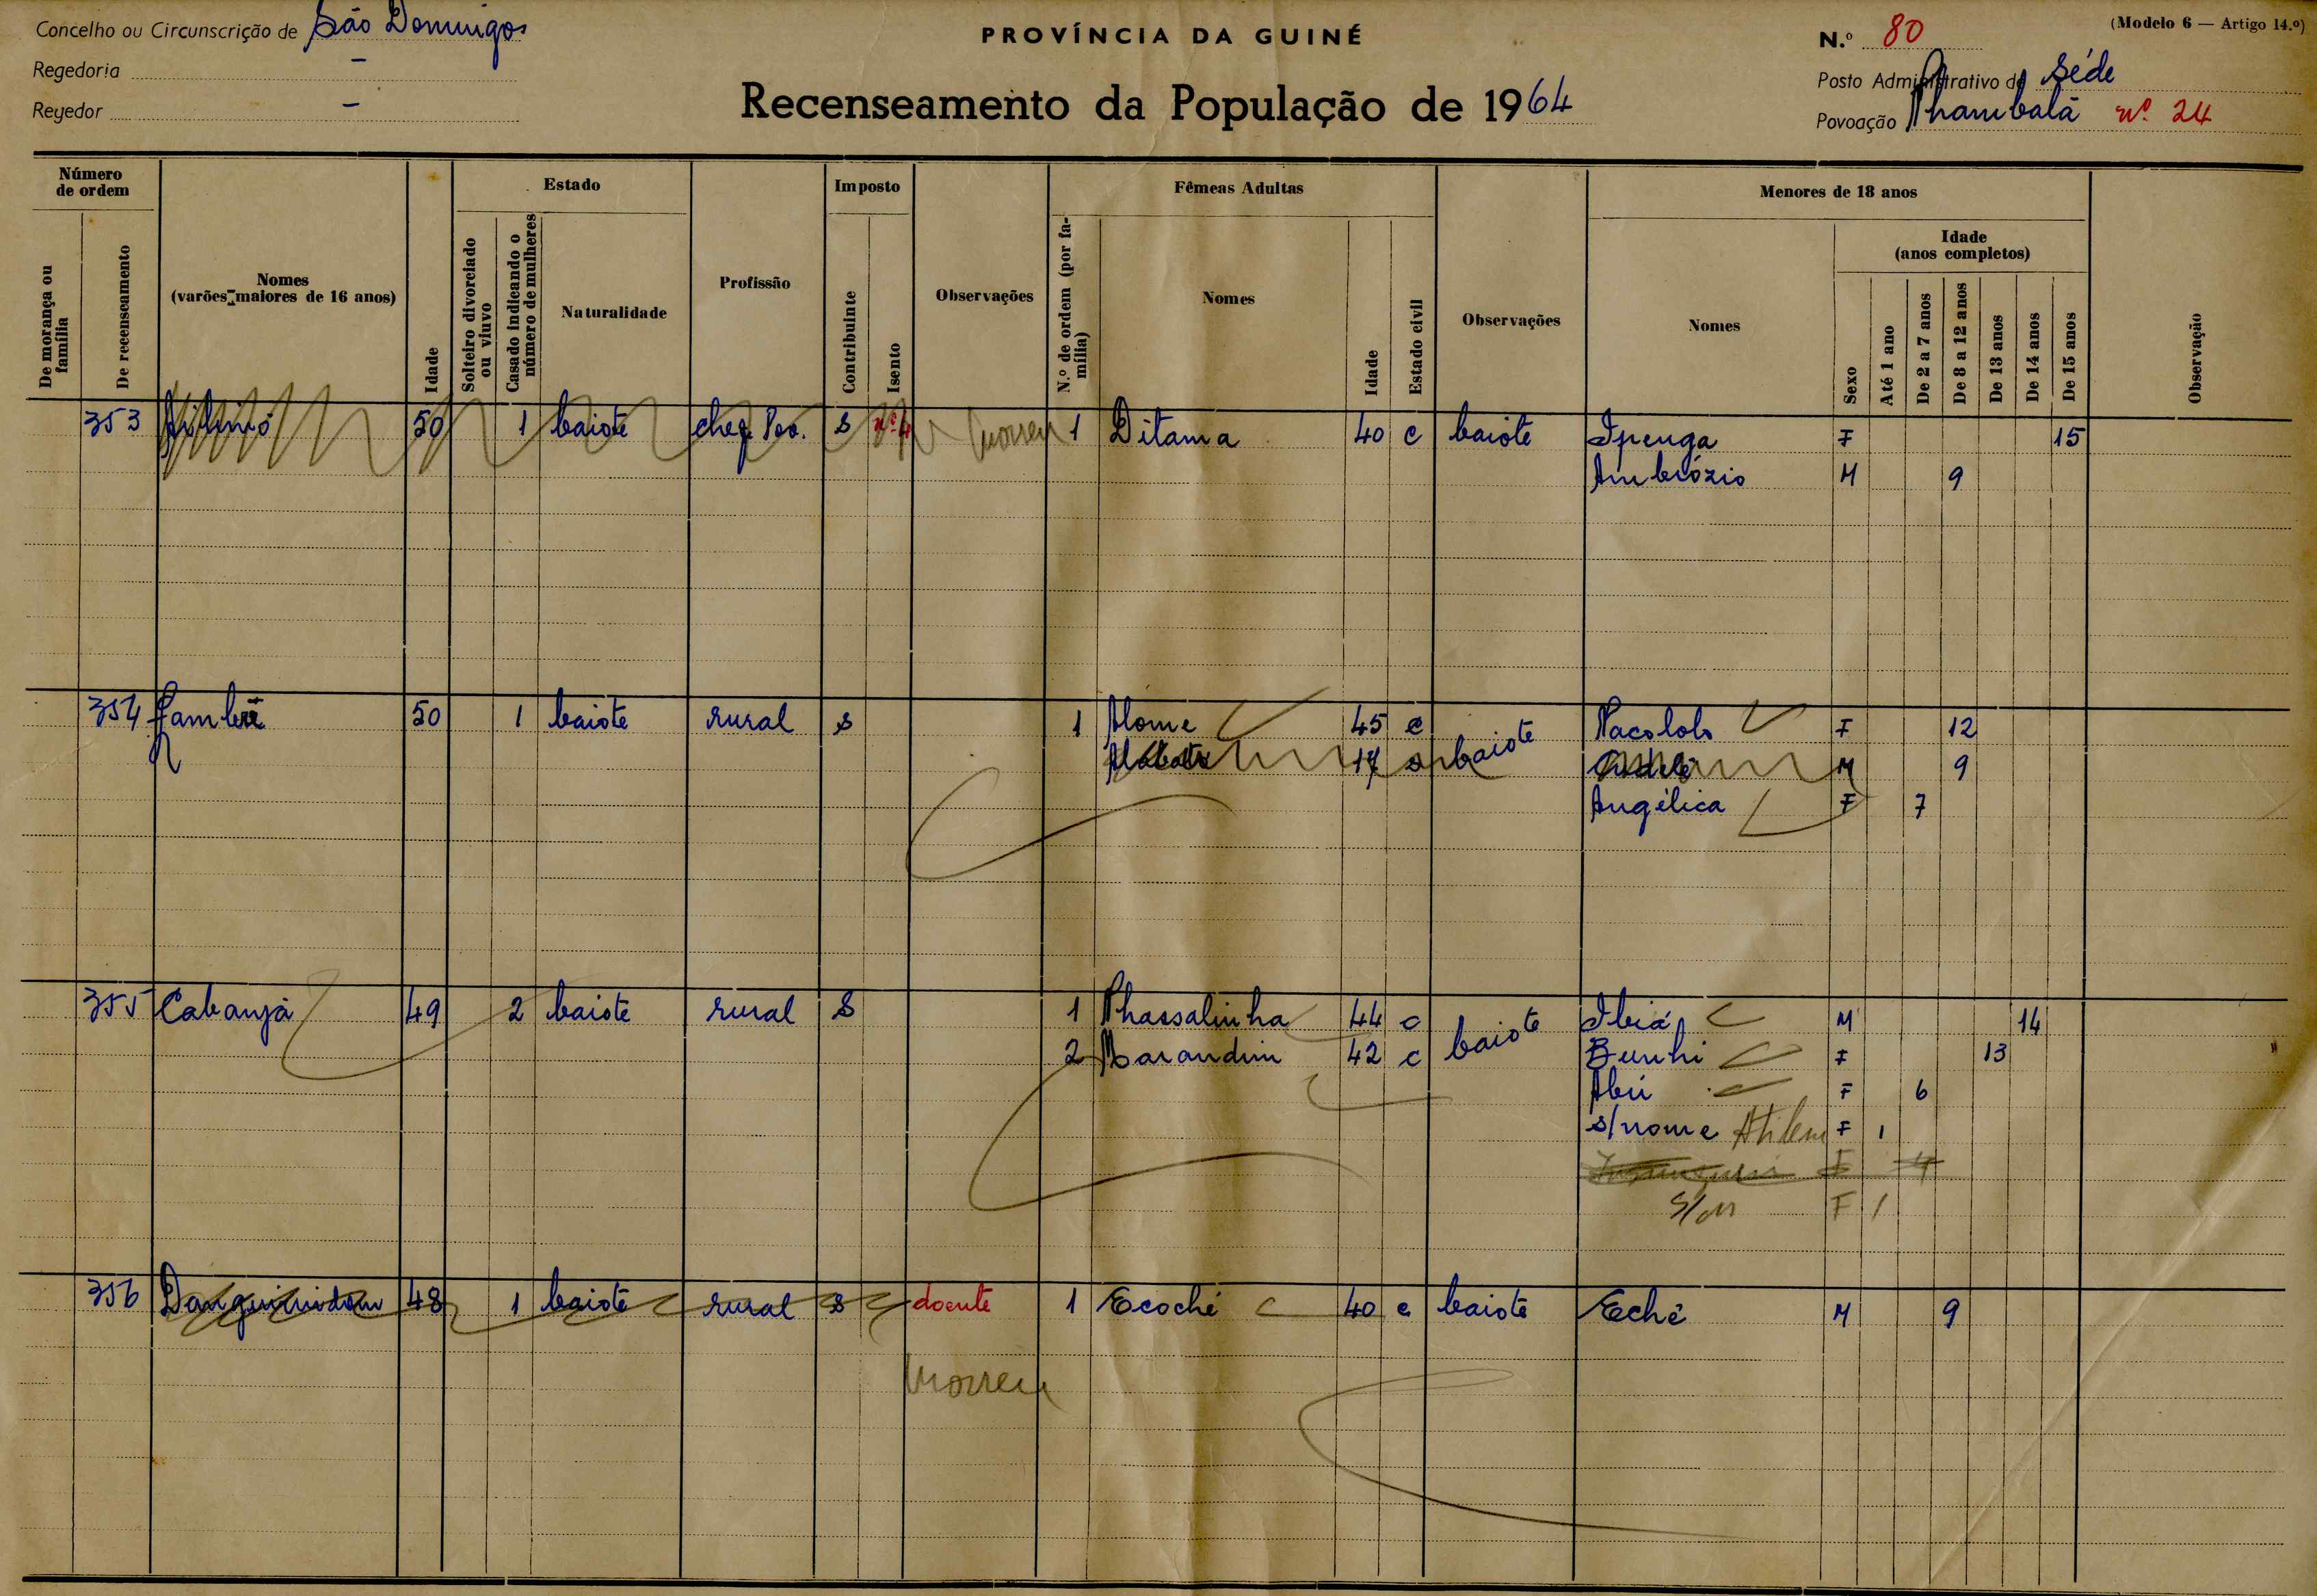 Concelho ou Circunscrição de São Domingos
PROVÍNCIA DA GUINÉ
N.º 80
(Modelo 6 — Artigo 14.º)
Regedoria –
Posto Administrativo de Séde
Regedor –
Recenseamento da População de 1964
Povoação Nhambalã nº 24
Número de ordem
Estado
Imposto
Fêmeas Adultas
Menores de 18 anos
De morança ou família
De recenseamento
Nomes (varões maiores de 16 anos)
Idade
Solteiro divorciado ou viuvo
Casado indicando o número de mulheres
Naturalidade
Profissão
Contribuinte
Isento
Observações
N.º de ordem (por família)
Nomes
Idade
Estado civil
Observações
Nomes
Sexo
Idade (anos completos)
Até 1 ano
De 2 a 7 anos
De 8 a 12 anos
De 13 anos
De 14 anos
De 15 anos
Observação
353 50 1 baiote chefe Pov. s nº 4 morreu 1 Ditama 40 c baiote Ipenga F 15
Ambrózio M 9
354 Jambré 50 1 baiote rural s 1 Alome 45 c baiote Nacololo F 12
17 s M 9
Angélica F 7
355 Cabanjá 49 2 baiote rural s 1 Nhassalinha 44 c baiote Ibiá M 14
2 Marandim 42 c Bunhi F 13
Abú F 6
s/nome Atilem F 1
F 4
S/m F 1
356 48 1 baiote rural s doente 1 Ecoché 40 c baiote Eché M 9
morreu